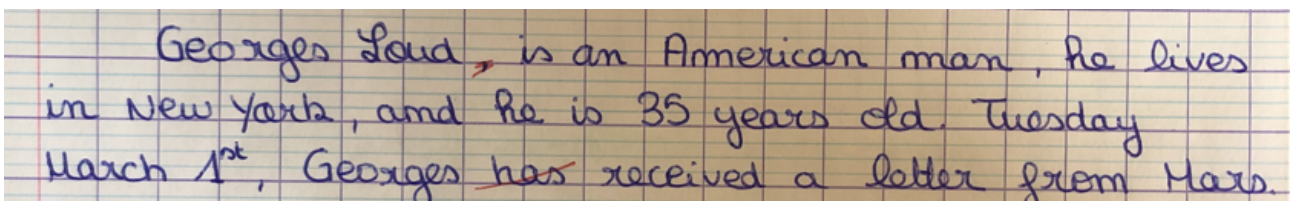 Georges Loud, is an American man, he lives
in New York, and he is 35 years old. Tuesday
March 1st, Georges has received a letter from Mars.